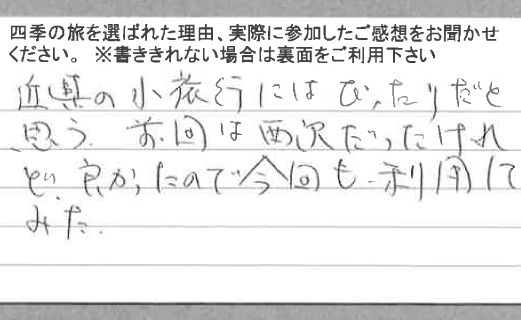 四季の旅を選ばれた理由、実際に参加したご感想をお聞かせ
ください。 ※書ききれない場合は裏面をご利用下さい
近県の小旅行にはぴったりだと
思う。前回は西沢だったけれ
ど、良かったので今回も利用して
みた。